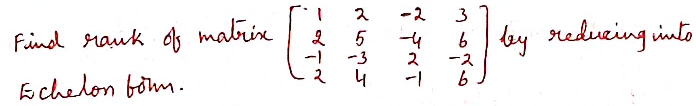 Find rank of matrix [1 2 -2 3
2 5 -4 6
-1 -3 2 -2
2 4 -1 6] by reducing into
Echelon form.